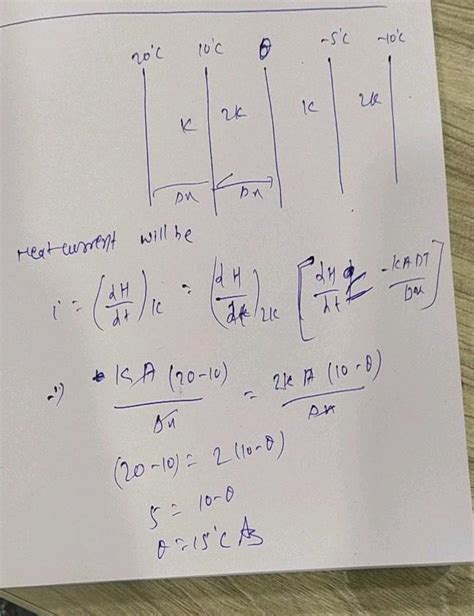 20°C 10°C θ -5°C -10°C
K 2K K 2K
Δx Δx
Heat current will be
i = (dH/dt)K = (dH/dt)2K [dH/dt -KADT/Dx]
⇒ KA(20-10)/Δx = 2KA(10-θ)/Δx
(20-10) = 2(10-θ)
5 = 10-θ
θ = 15°C